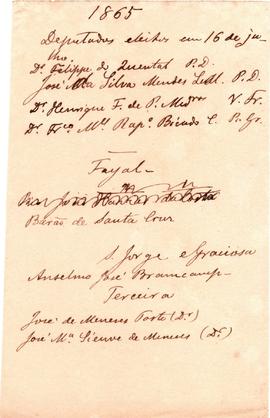 1865
Deputados eleitos em 16 de ju-
nho.
Dr. Filippe de Quental P.D.
José Mª da Silva Mendes Leal. P.D.
Dr. Henrique F. de P. Medros V. Fr.
Dr. Frco Mel Rapº Bicudo C. P. Gr.
Fayal
Barão de Santa Cruz
S. Jorge e Graciosa
Anselmo José Braamcamp
Terceira
José de Meneses Porto (Dr)
José Mª Sieuve de Meneses (Dr.)